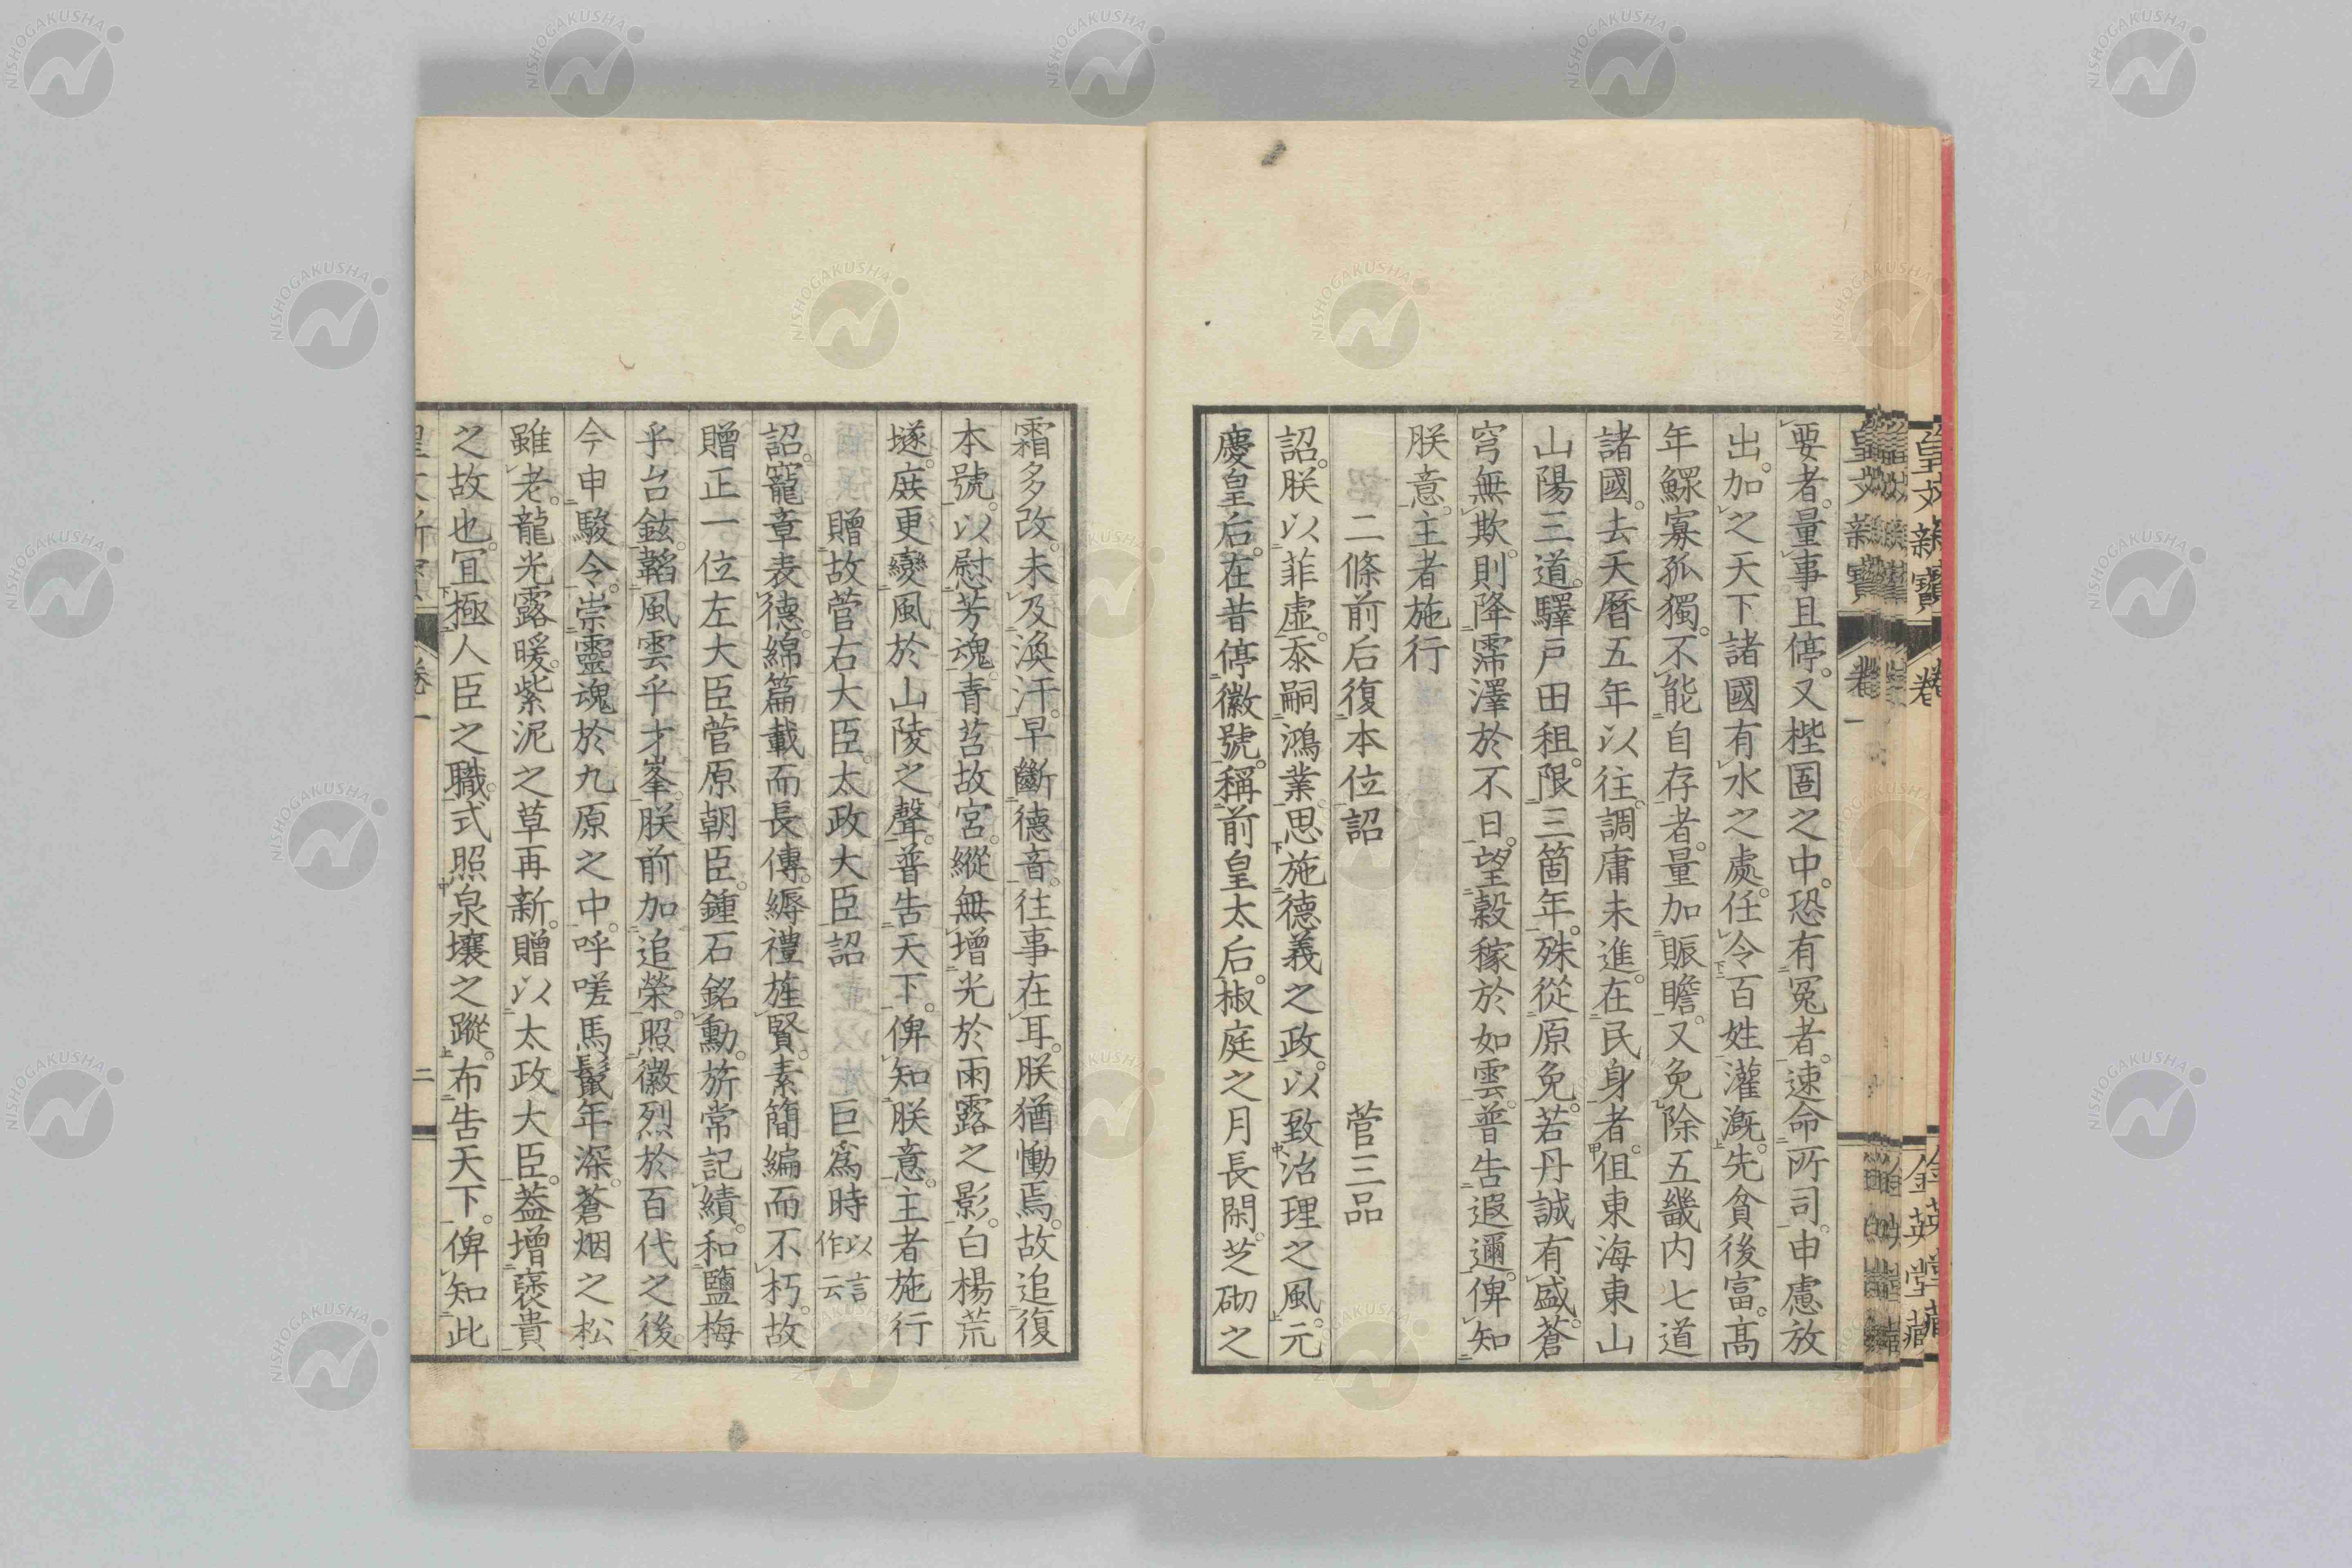 要者。量事且停。又桎圄之中。恐有冤者。速命所司。申慮放
出。加之天下諸國有水之處。任令百姓灌漑。先貧後富。高
年鰥寡孤獨。不能自存者。量加賑贍。又免除五畿内七道
諸國。去天曆五年以往。調庸未進。在民身者。但東海東山
山陽三道。驛戸田租。限三箇年。殊從原免。若丹誠有感。蒼
穹無欺。則降霈澤於不日。望穀稼於如雲。普告遐邇。俾知
朕意。主者施行
二條前后復本位詔 菅三品
詔。朕以菲虚。忝嗣鴻業。思施德義之政。以致治理之風。元
慶皇后。在昔停徽號。稱前皇太后。椒庭之月長閑。芝砌之
霜多改。未及渙汗。早斷德音。往事在耳。朕猶慟焉。故追復
本號。以慰芳魂。青苔故宮。縱無增光於雨露之影。白楊荒
墜。庶更變風於山陵之聲。普告天下。俾知朕意。主者施行
贈故菅右大臣。太政大臣詔 巨爲時 以言作云
詔。寵章表德。綿篇載而長傳。縟禮旌賢。素簡編而不朽。故
贈正一位左大臣菅原朝臣。鍾石銘勳。旂常記績。和鹽梅
乎台鉉。韜風雲乎才峯。朕前加追榮。照徽烈於百代之後。
今申駿令。崇靈魂於九原之中。呼嗟馬鬣年深。蒼烟之松
雖老。龍光露暖。紫泥之草再新。贈以太政大臣。蓋增褒貴
之故也。宜極人臣之職。式照泉壤之蹤。布告天下。俾知此
皇文新寶 卷一
金英堂藏
NISHOGAKUSHA